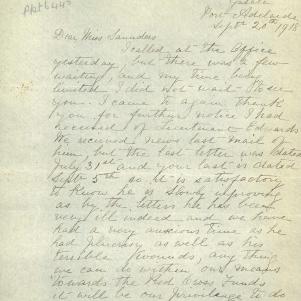 Port Adelaide
Sept 20th 1918
Dear Miss Saunders
I called at the Office
yesterday, but there was a few
waiting, and my time being
limited I did not wait to see
you. I came to again thank
you for further notice I had
received of Lieutenant Edwards
We received news last mail of
him, but the last letter was dated
July 31st and our last is dated
Sept 5th so it is satisfactory
to know he is slowly improving
as by the letters he has been
very ill indeed and we have
had a very anxious time as he
had pleurisy as well as his
terrible wounds, any thing
we can do within our means
towards the Red Cross Funds
it will be our privilege to do